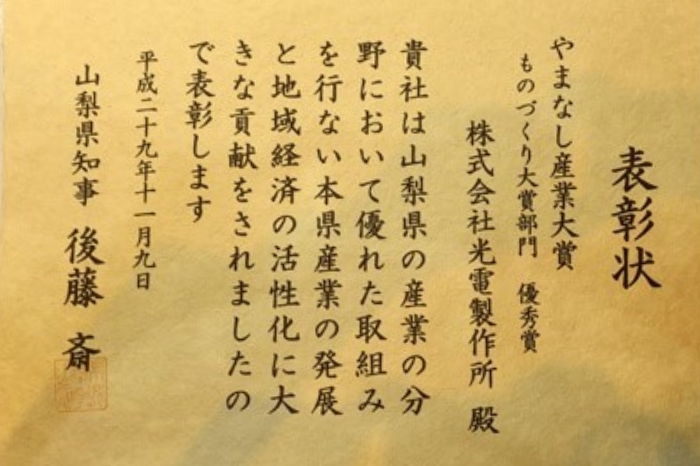 表彰状
やまなし産業大賞
ものづくり大賞部門　優秀賞
株式会社光電製作所　殿
貴社は山梨県の産業の分
野において優れた取組み
を行ない本県産業の発展
と地域経済の活性化に大
きな貢献をされましたの
で表彰します
平成二十九年十一月九日
山梨県知事　後藤　斎